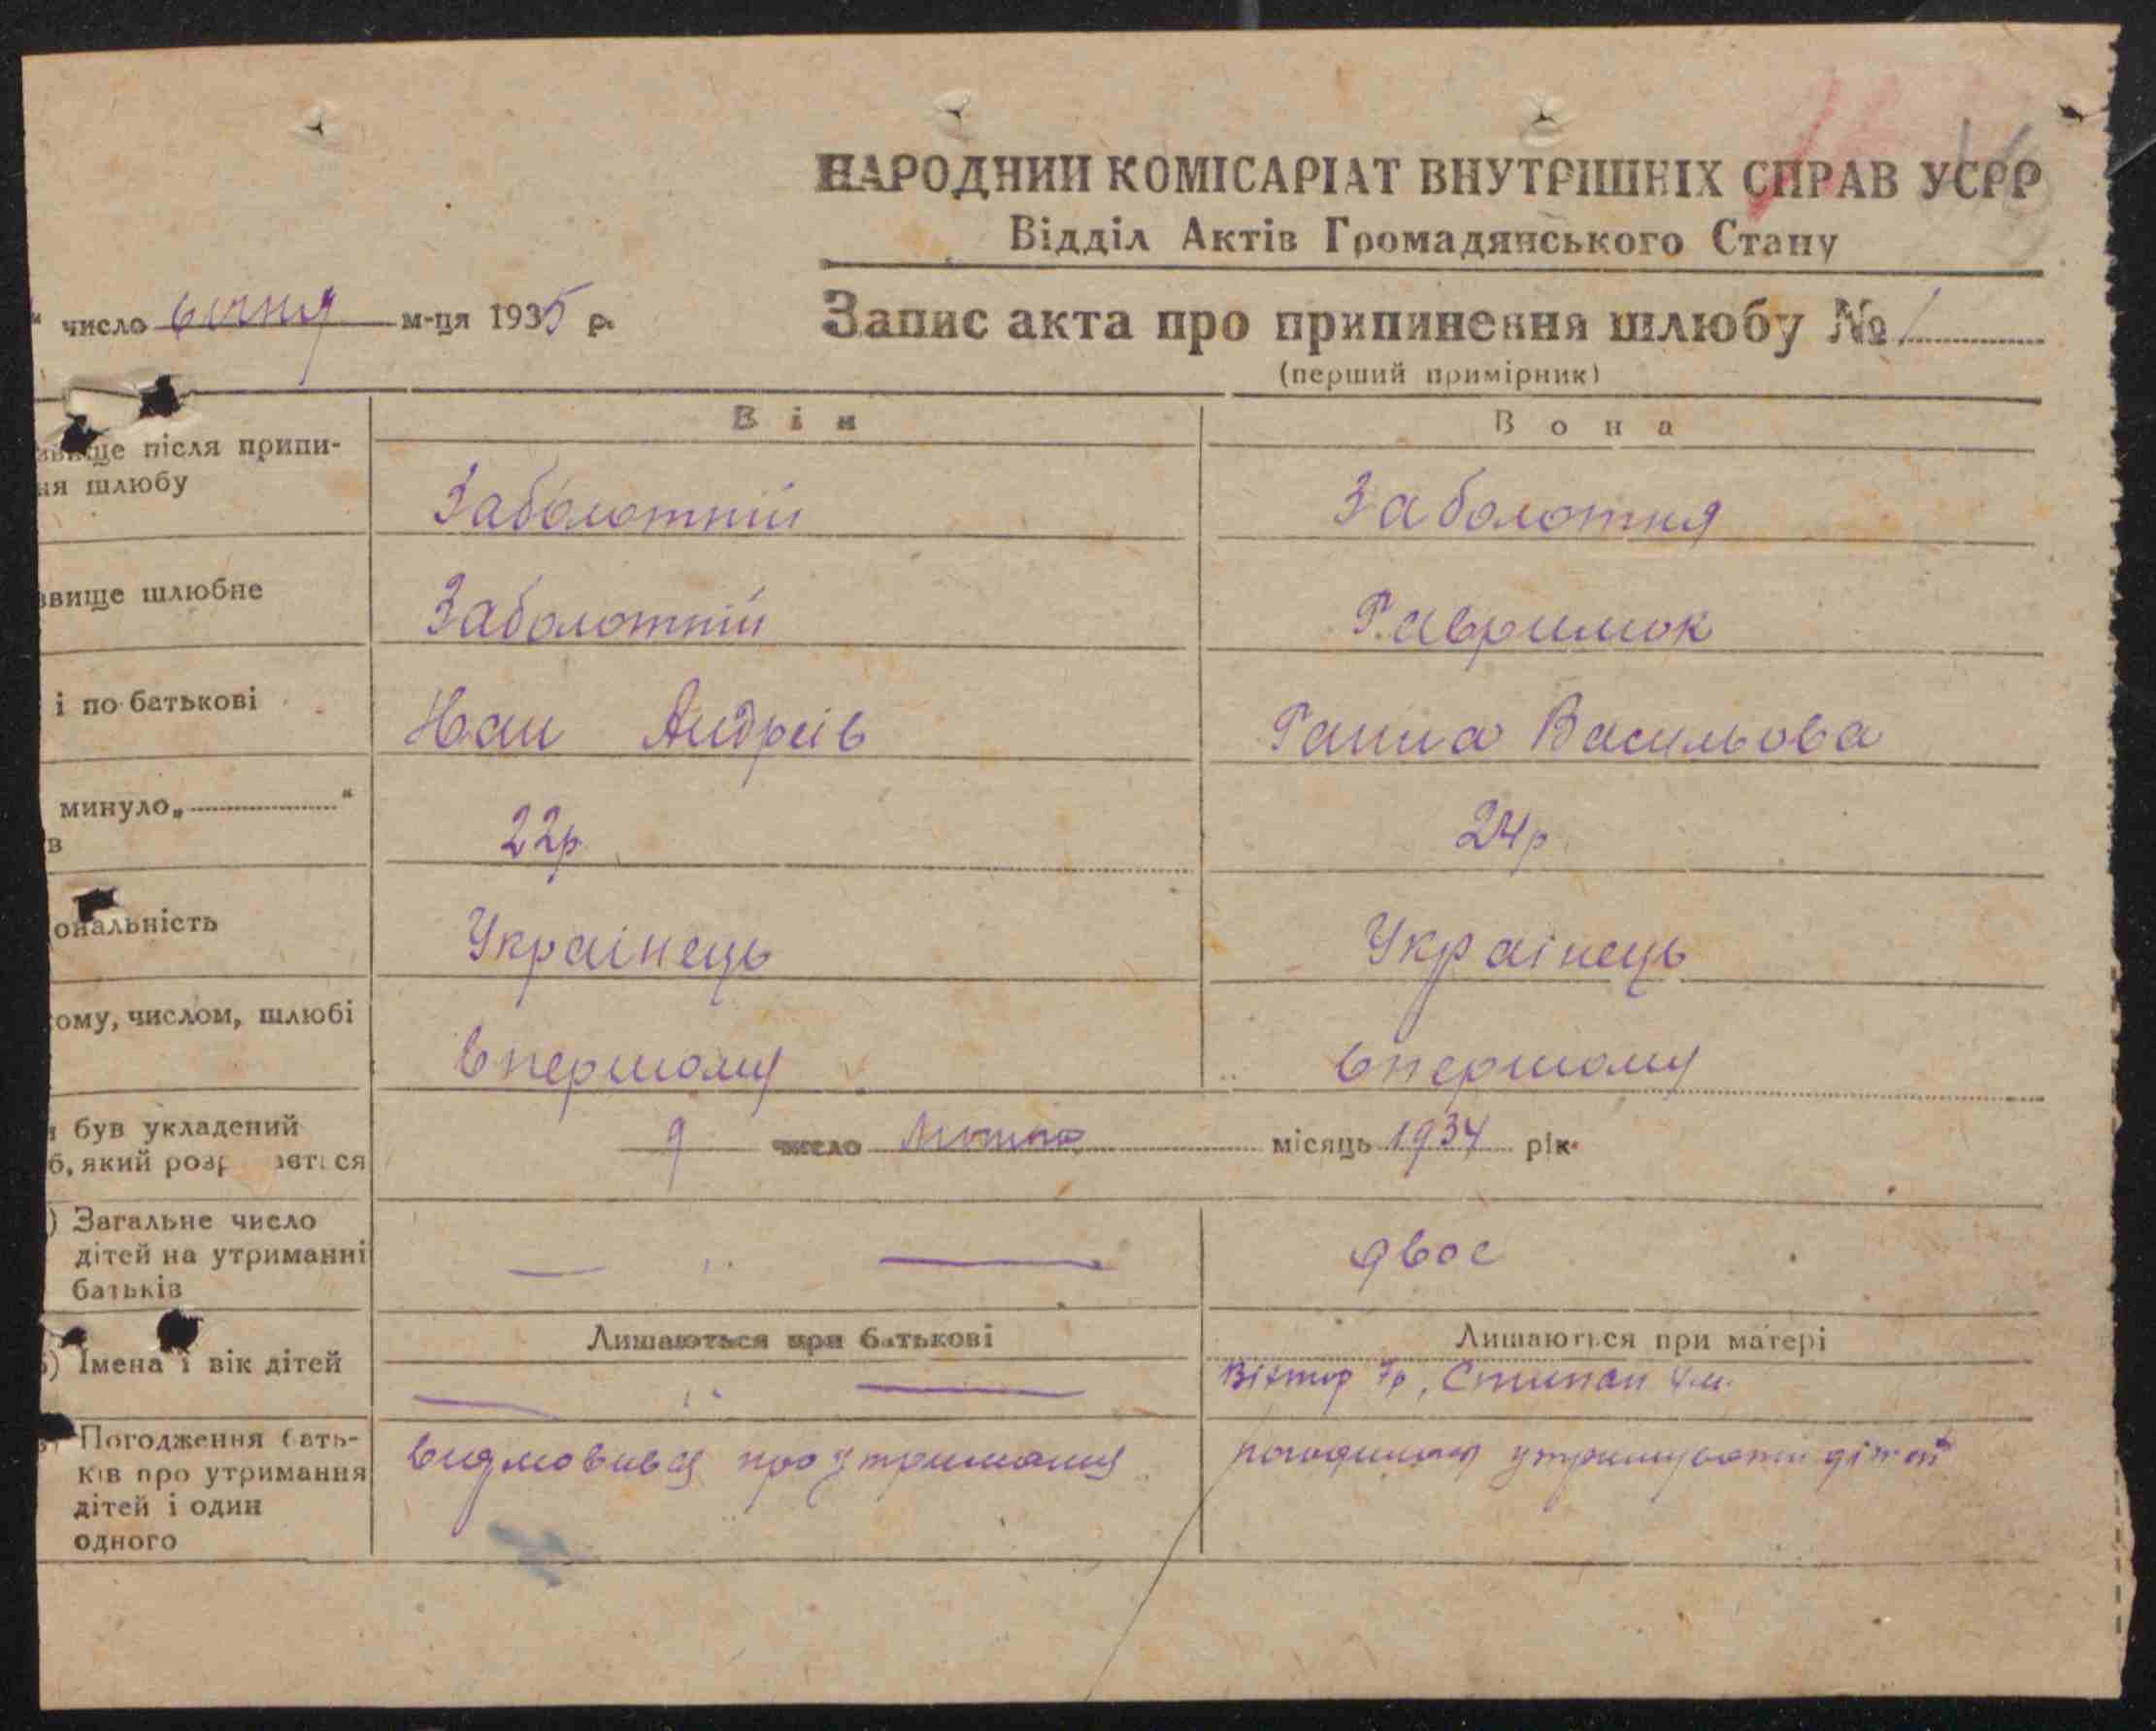 НАРОДНИЙ КОМІСАРІАТ ВНУТРІШНІХ СПРАВ УСРР
Відділ Актів Громадянського Стану
" число січня м-ця 1935 р.
Запис акта про припинення шлюбу № 1
(перший примірник)
Він Вона
звище після припи-
ня шлюбу
Заболотній Заболотня
звище шлюбне Заболотній Гаврилюк
і по-батькові Андреів Ганна Васильова
минуло „ “
в
22р 24р.
ональність Украінець Украінець
ому, числом, шлюбі
впершому впершому
був укладений
б, який розр ється
9 число Лютого місяць 1934 рік
) Загальне число
дітей на утриманні
батьків
— " — двое
Лишаються при батькові Лишаються при матері
) Імена і вік дітей — " — Віктор 7р, Степан 4 м.
Погодження бать-
ків про утримання
дітей і один
одного
видмовився про утримания утримувати дітей